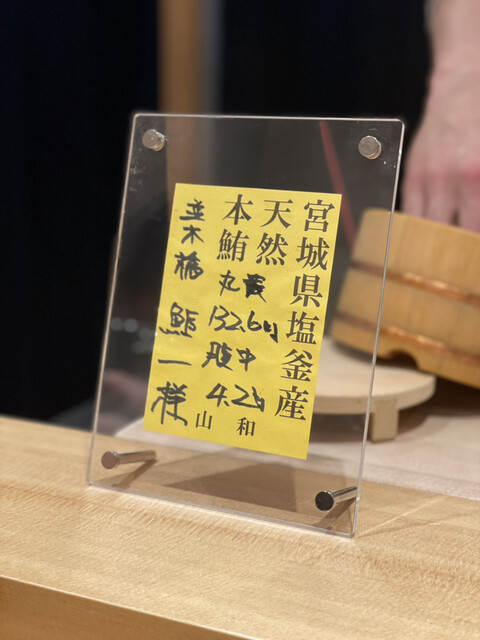 宮城県塩釜産
天然
本鮪
丸貫
132.6kg
腹中
4.2kg
山和
並木橋
鮨一様